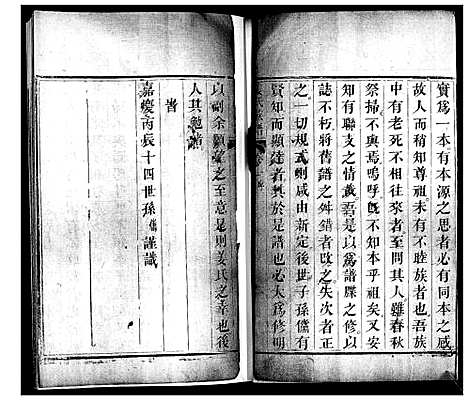 實爲一本有本源之思者必有同本之感
故人而稍知尊祖未有不睦族者也吾族
中有老死不相往來者至問其人雖春秋
祭掃不與焉嗚呼旣不知本乎祖矣又安
知有聯支之情哉吾是以爲譜牒之修以
誌不朽將舊譜之舛錯者改之失次者正
之一切規式剏咸由新定後世子孫儻有
賢知而顯達者興於是譜也必大爲修明
以副余願之至意是則姜氏之幸也後
人其勉諸
旹
嘉慶丙辰十四世孫謹識